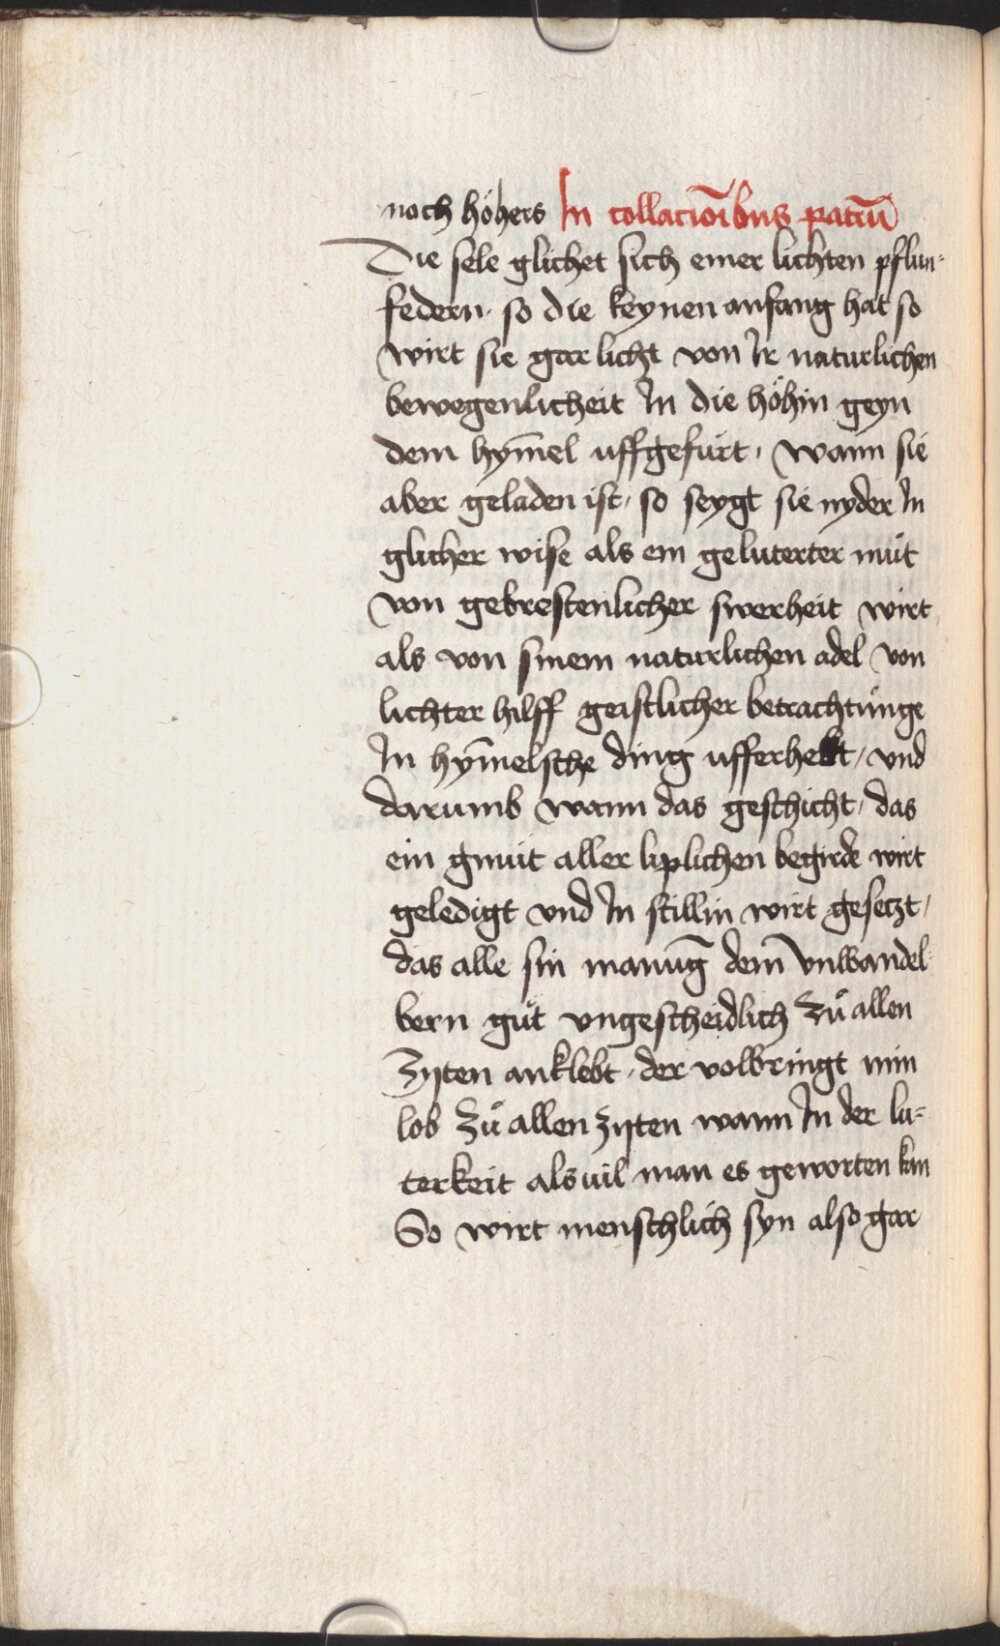 noch höhers In collacioību𝑠 patrū
Die sele glichet sich einer lichten pflun⸗
federn· so die keynen anfang hat so
wirt sie gar licht von Ir naturlichen
bewegenlicheit In die höhin geyn
dem hym̄el uffgefürt, wann sie
aber geladen ist, so seygt sie nyder In
glicher wise als ein geluterter müt
von gebrestenlicher swerheit wirt
als von sinem naturlichen adel von
lichter hilff geistlicher betrachtünge
In hym̄elsche ding ufferhebt / vnd
darumb wann das geschicht, das
ein gmüt aller liplichen begirde wirt
geledigt vnd In stillin wirt gesetzt /
das alle sin manūg dem vnwandel
bern gůt vngescheidlich zů allen
Zyten anklebt, der volbringt min
lob zů allen zyten wann In der lu⸗
terkeit als vil man es geworten kan
So wirt menschlich syn also gar